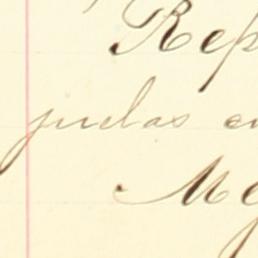 Rep
juelas en
Me